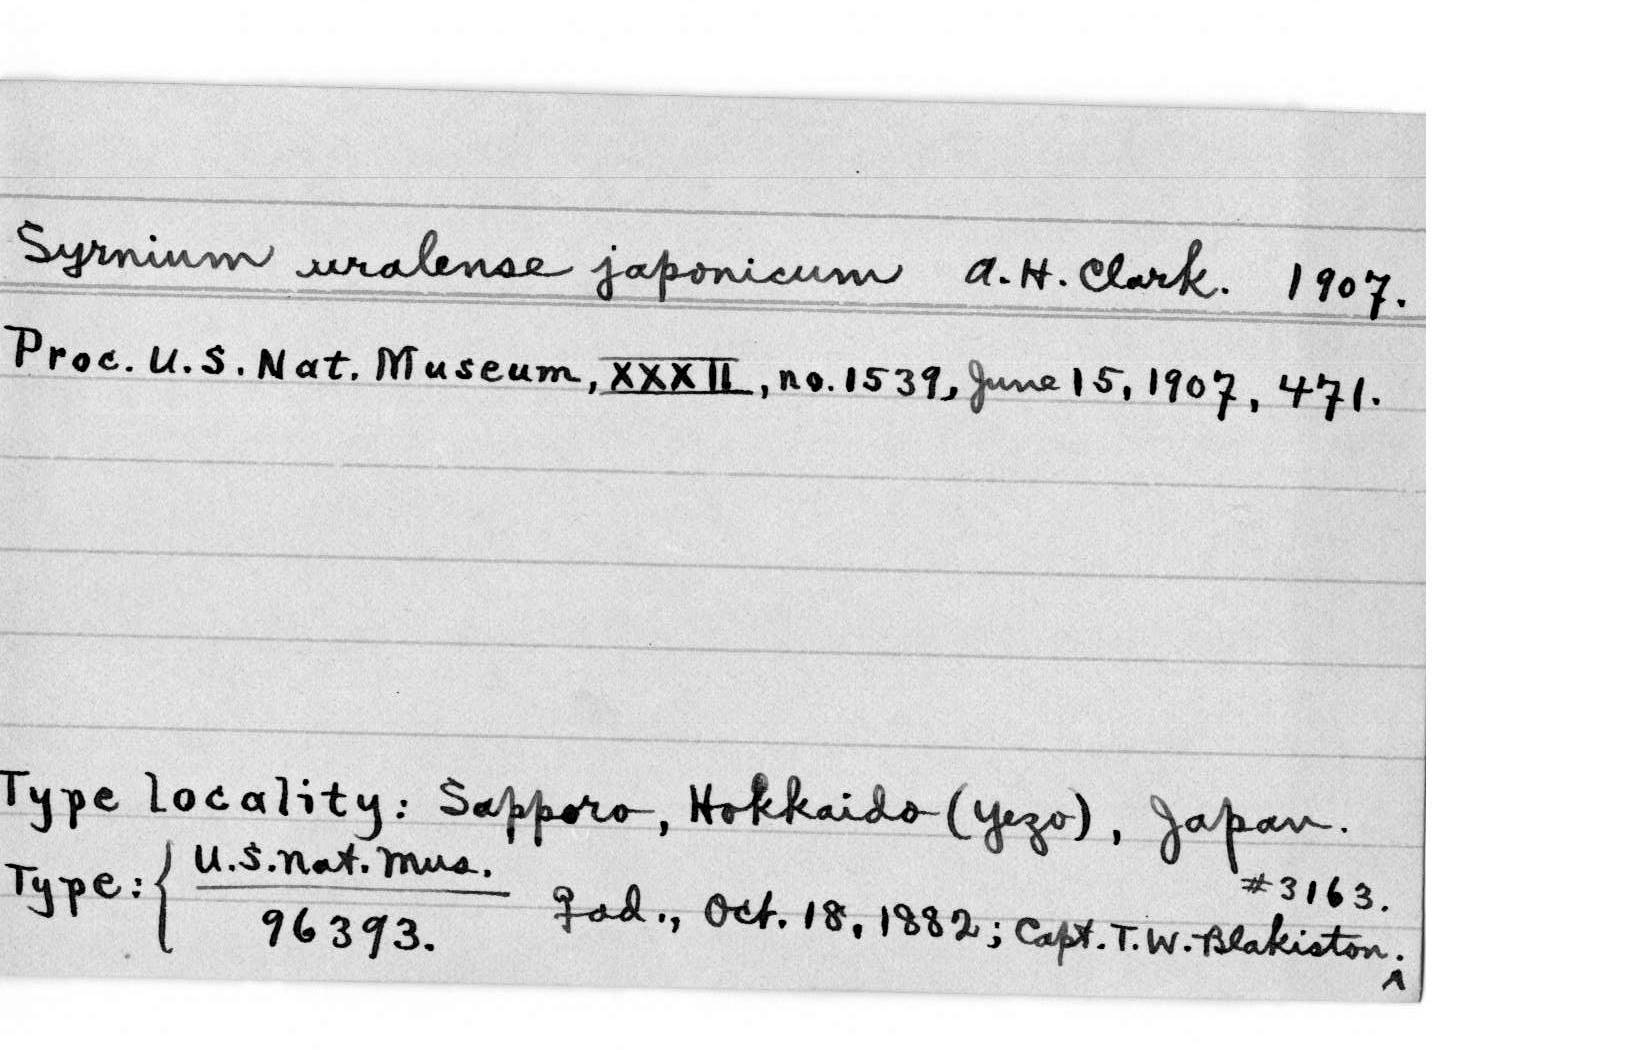 Syrnium uralense japonicum A. H. Clark. 1907.
Proc. U.S. Nat. Museum, XXXII, no. 1539, June 15, 1907, 471.
Type locality: Sapporo, Hokkaido (Yezo), Japan.
Type: { U.S. Nat. Mus. #3163.
96393. ♀ ad., Oct. 18, 1882; Capt. T. W. Blakiston.
A